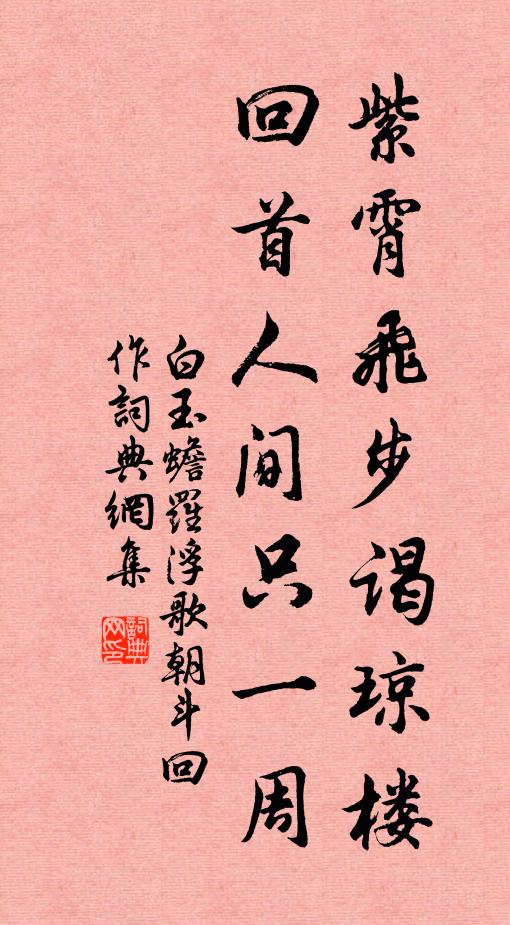 紫霄飛步谒琼楼
回首人間只一周
白玉蟾羅浮歌朝斗回
作詞典網集
詞典
网印